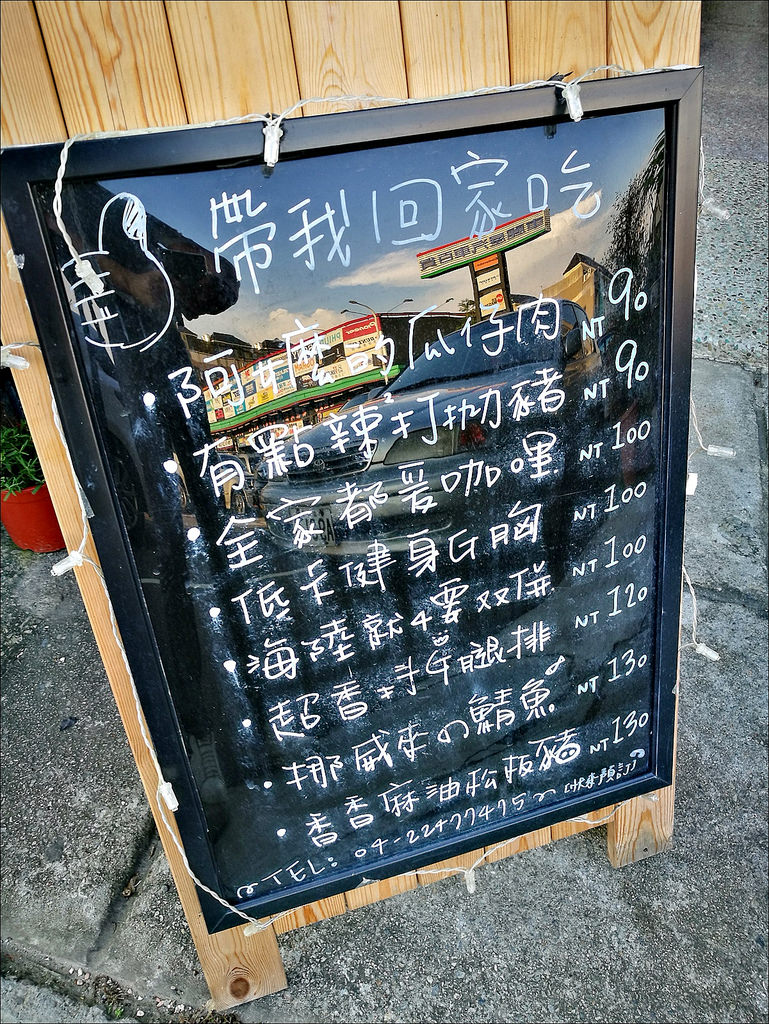 帶我回家吃
阿嬤的瓜仔肉 NT 90
有點辣打拋豬 NT 90
全家都爱咖哩 NT 100
低卡健身G胸 NT 100
海陸就4要双併 NT 100
超香ㄉG腿排 NT 120
挪威來の鯖魚 NT 130
香香麻油松板豬 NT 130
~TEL: 04-22477475~ (快來預訂)